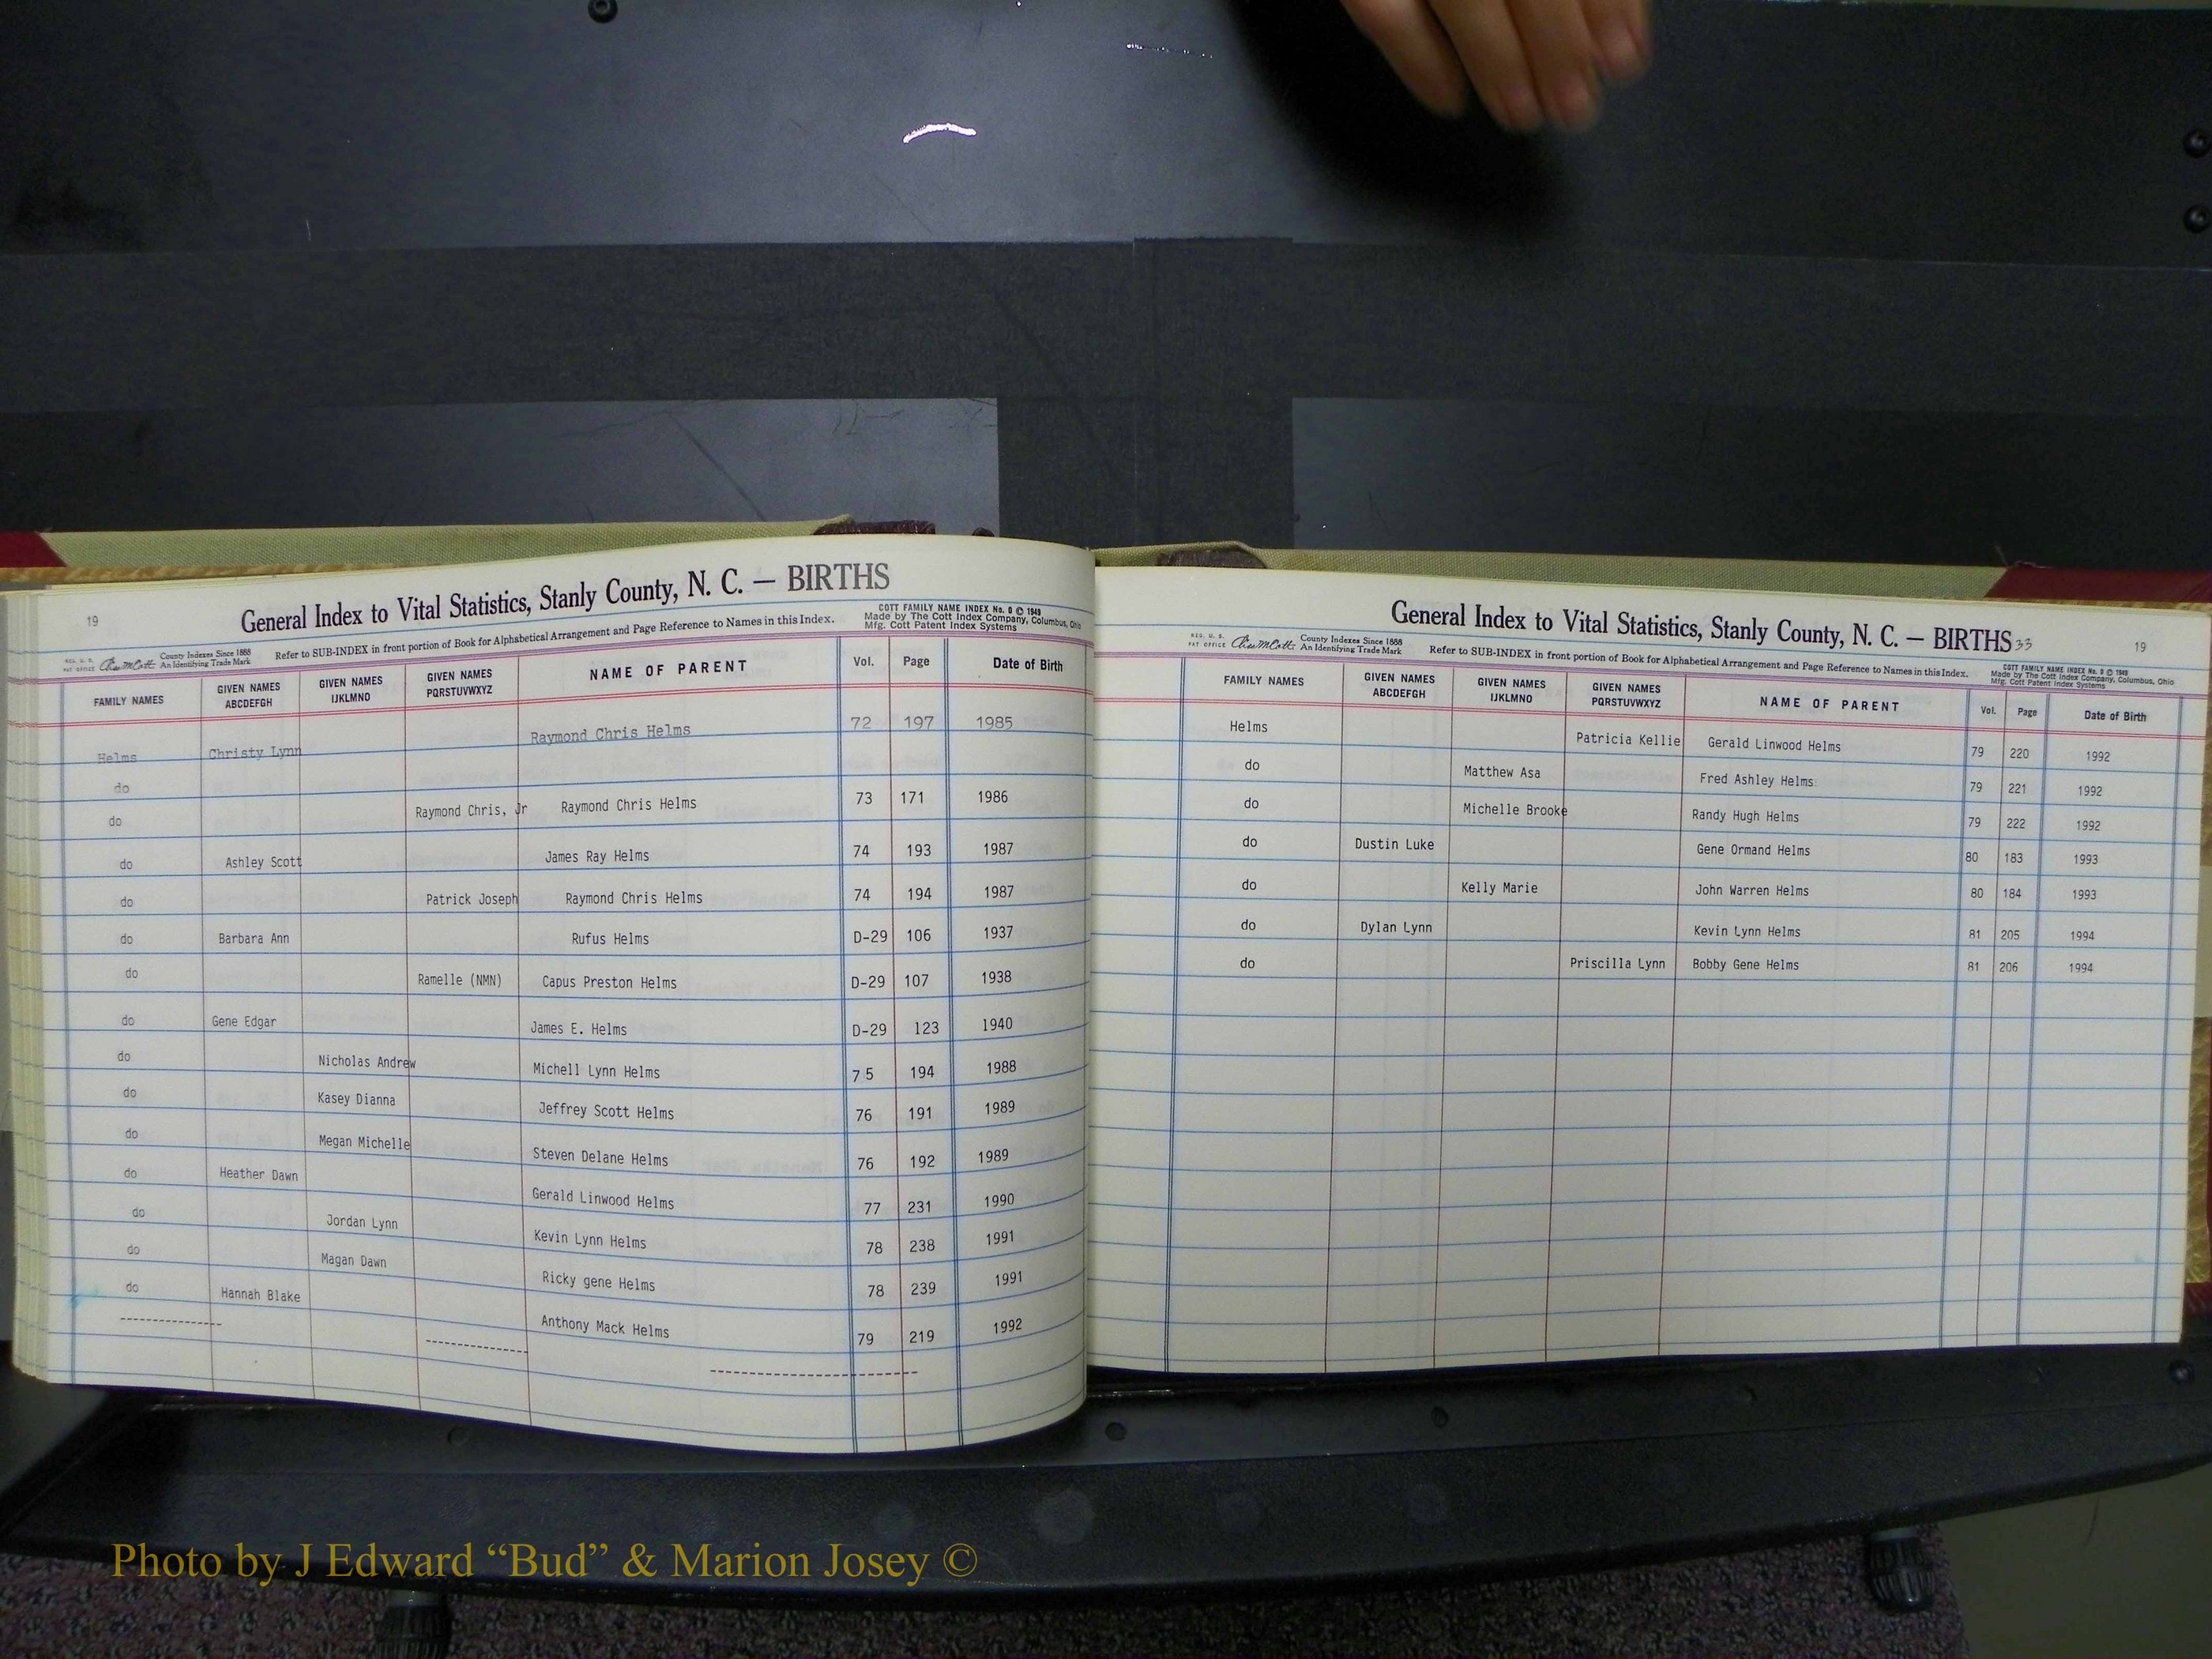 19
General Index to Vital Statistics, Stanly County, N. C. — BIRTHS
COTT FAMILY NAME INDEX No. 0 © 1949
Made by The Cott Index Company, Columbus, Ohio
Mfg. Cott Patent Index Systems
REG. U. S. PAT OFFICE County Indexes Since 1888
An Identifying Trade Mark
Refer to SUB-INDEX in front portion of Book for Alphabetical Arrangement and Page Reference to Names in this Index.
FAMILY NAMES GIVEN NAMES ABCDEFGH GIVEN NAMES IJKLMNO GIVEN NAMES PQRSTUVWXYZ NAME OF PARENT Vol. Page Date of Birth
Helms Christy Lynn Raymond Chris Helms 72 197 1985
do
do Raymond Chris, Jr Raymond Chris Helms 73 171 1986
do Ashley Scott James Ray Helms 74 193 1987
do Patrick Joseph Raymond Chris Helms 74 194 1987
do Barbara Ann Rufus Helms D-29 106 1937
do Ramelle (NMN) Capus Preston Helms D-29 107 1938
do Gene Edgar James E. Helms D-29 123 1940
do Nicholas Andrew Michell Lynn Helms 75 194 1988
do Kasey Dianna Jeffrey Scott Helms 76 191 1989
do Megan Michelle Steven Delane Helms 76 192 1989
do Heather Dawn Gerald Linwood Helms 77 231 1990
do Jordan Lynn Kevin Lynn Helms 78 238 1991
do Magan Dawn Ricky gene Helms 78 239 1991
do Hannah Blake Anthony Mack Helms 79 219 1992
General Index to Vital Statistics, Stanly County, N. C. — BIRTHS 33
19
REG. U. S. PAT OFFICE County Indexes Since 1888
An Identifying Trade Mark
Refer to SUB-INDEX in front portion of Book for Alphabetical Arrangement and Page Reference to Names in this Index.
COTT FAMILY NAME INDEX No. 0 © 1949
Made by The Cott Index Company, Columbus, Ohio
Mfg. Cott Patent Index Systems
FAMILY NAMES GIVEN NAMES ABCDEFGH GIVEN NAMES IJKLMNO GIVEN NAMES PQRSTUVWXYZ NAME OF PARENT Vol. Page Date of Birth
Helms Patricia Kellie Gerald Linwood Helms 79 220 1992
do Matthew Asa Fred Ashley Helms 79 221 1992
do Michelle Brooke Randy Hugh Helms 79 222 1992
do Dustin Luke Gene Ormand Helms 80 183 1993
do Kelly Marie John Warren Helms 80 184 1993
do Dylan Lynn Kevin Lynn Helms 81 205 1994
do Priscilla Lynn Bobby Gene Helms 81 206 1994
Photo by J Edward “Bud” & Marion Josey ©